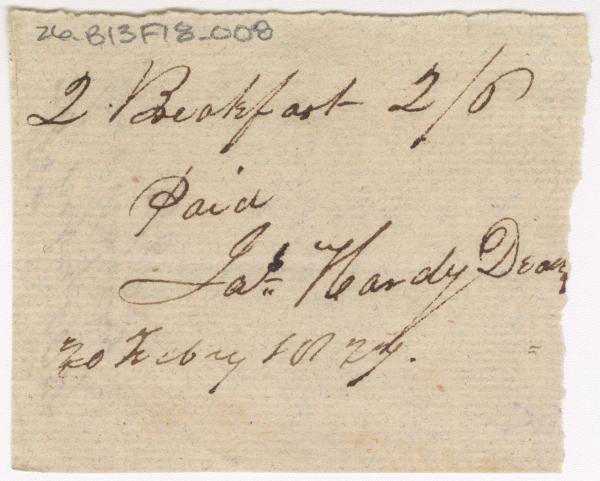 26.B13F18-008
2 Breakfast 2/6
Paid
Jas. Hardy
20 Febry 1824.